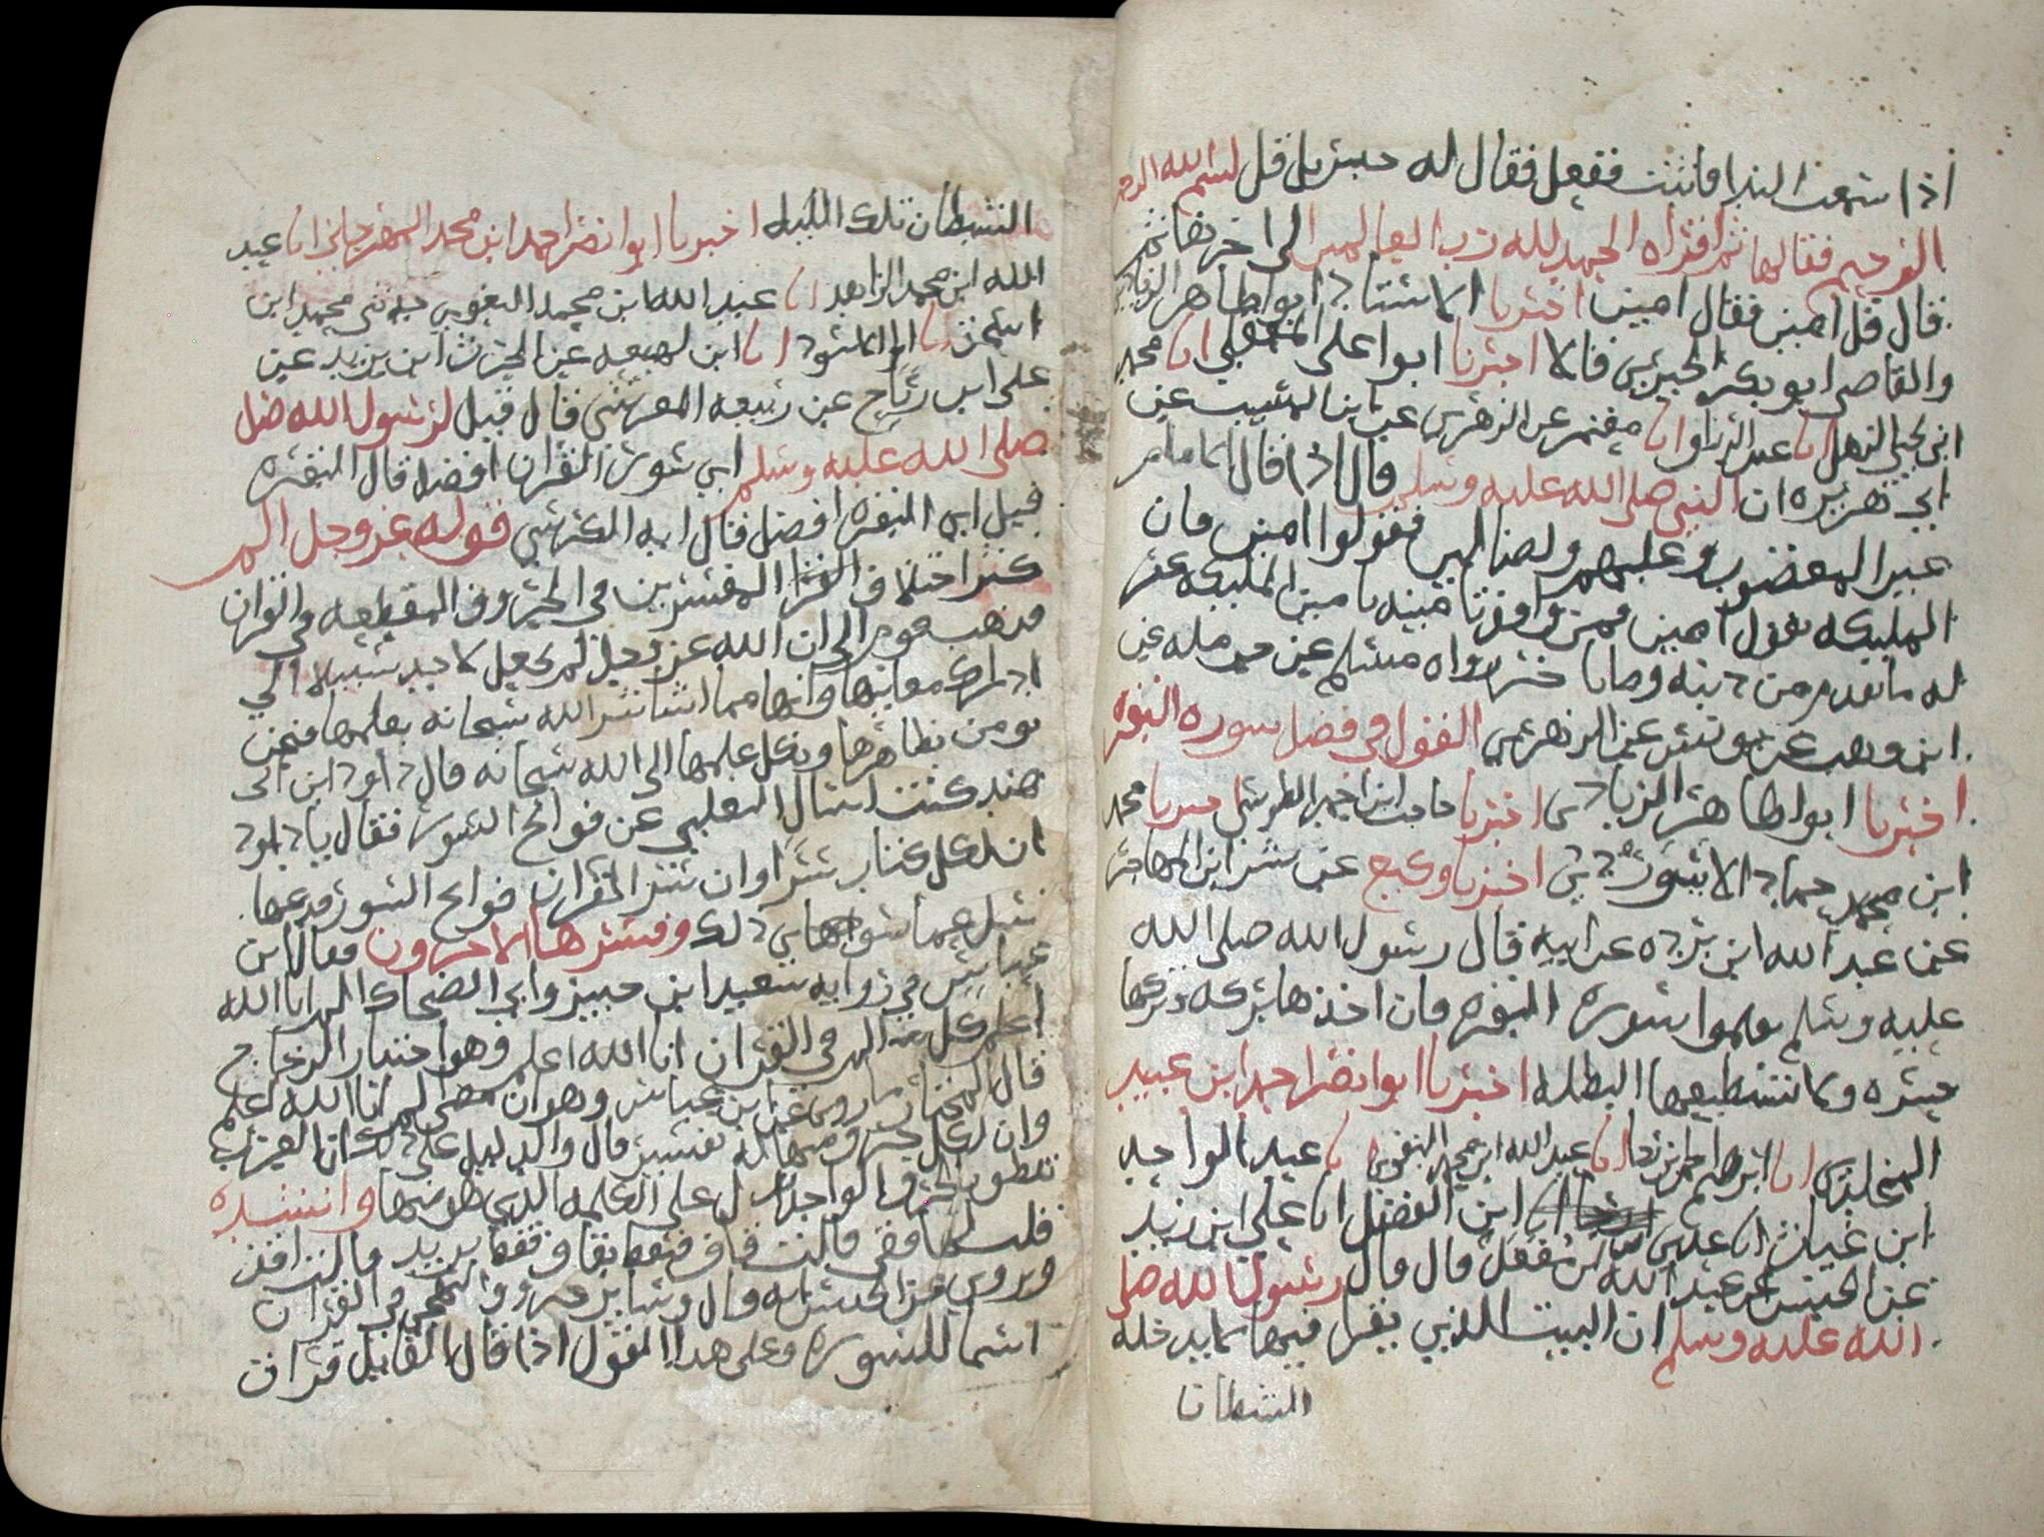 اذا سمعت الندا فاثبت ففعل فقال له جبريل قل بسم الله الرحمن
الرحيم فقالها ثم اقراه الحمد لله رب العالمين الى اخرها ثم
قال قل امين فقال امين اخبرنا الاستاذ ابوا طاهر الزيادي
والقاضي ابو بكر الحيري قالا اخبرنا ابوا على المعقلي انا محمد
ابن يحيى الذهلي انا عبد الرزاق انا معمر عن الزهري عن ابن المسيب عن
ابي هريره ان النبي صلى الله عليه وسلم قال اذا قال الامام
غير المغضوب عليهم ولا الضالين فقولوا امين فان
المليكه تقول امين فمن وافق تامينه تامين المليكه غفر
له ما تقدم من ذنبه رواه مسلم عن حرمله عن
ابن وهب عن يونس عن الزهري القول في فضل سوره البقره
اخبرنا ابوا طاهر الزيادي اخبرنا حاجب ابن احمد الطوسي حدثنا محمد
ابن حماد الابيوردي اخبرنا وكيع عن بشر ابن المهاجر
عن عبد الله ابن بريده عن ابيه قال رسول الله صلى الله
عليه وسلم تعلموا سوره البقره فان اخذها بركه وتركها
حسره ولا تستطيعها البطله اخبرنا ابوا نصر احمد ابن عبيد
المخلدي انا عبد الله ابن محمد البغوي انا عبد الواحد
ابن غياث انا ابن الفضل انا علي ابن زيد
عن الحسن عن عبد الله ابن مغفل قال قال رسول الله صلى
الله عليه وسلم ان البيت الذي يقرا فيها لا يدخله
الشيطان
الشيطان تلك الليله اخبرنا ابوا نصر احمد ابن محمد المهرجاني انا عبد
الله ابن محمد الزاهد انا عبد الله ابن محمد البغوي حدثني محمد ابن
اسحق انا ابوا الاسود انا ابن لهيعه عن الحرث ابن يزيد عن
على ابن رباح عن ربيعه الجرشي قال قيل لرسول الله صل
صلى الله عليه وسلم اي سوره القران افضل قال البقره
قيل اي البقره افضل قال ايه الكرسي قوله عز وجل الم
كثر اختلاف المفسرين في الحروف المقطعه في القران
فذهب قوم الى ان الله عز وجل لم يجعل لاحد سبيلا الى
ادراك معانيها وانها مما استاثر الله سبحانه بعلمها فنحن
نومن بظاهرها ونكل علمها الى الله سبحانه قال داود ابن ابى
هند كنت اسال الشعبي عن فواتح السور فقال يا داود
ان لكل كتاب سرا وان سر القران فواتح السور فدعها
وسل عما سوا ذلك وفسرها الاخرون فقال ابن
عباس في روايه سعيد ابن جبير وابي الضحاك الم انا الله
اعلم كل الم في القران انا الله اعلم وهو اختيار الزجاج
قال المختار ما روي عن ابن عباس وهو ان معنى الم انا الله اعلم
وان لكل حرف منها له تفسير قال والدليل على ذلك ان العرب
تنطق بالحرف الواحد تدل على الكلمه الذي هو منها وانشده
قلت لها قفي قالت قاف فنطق بقاف فقط يريد قالت اقف
وروي عن الحسن انه قال وساير حروف التهجي في القران
اسما للسوره وعلى هذا القول اذا قال القايل قرات